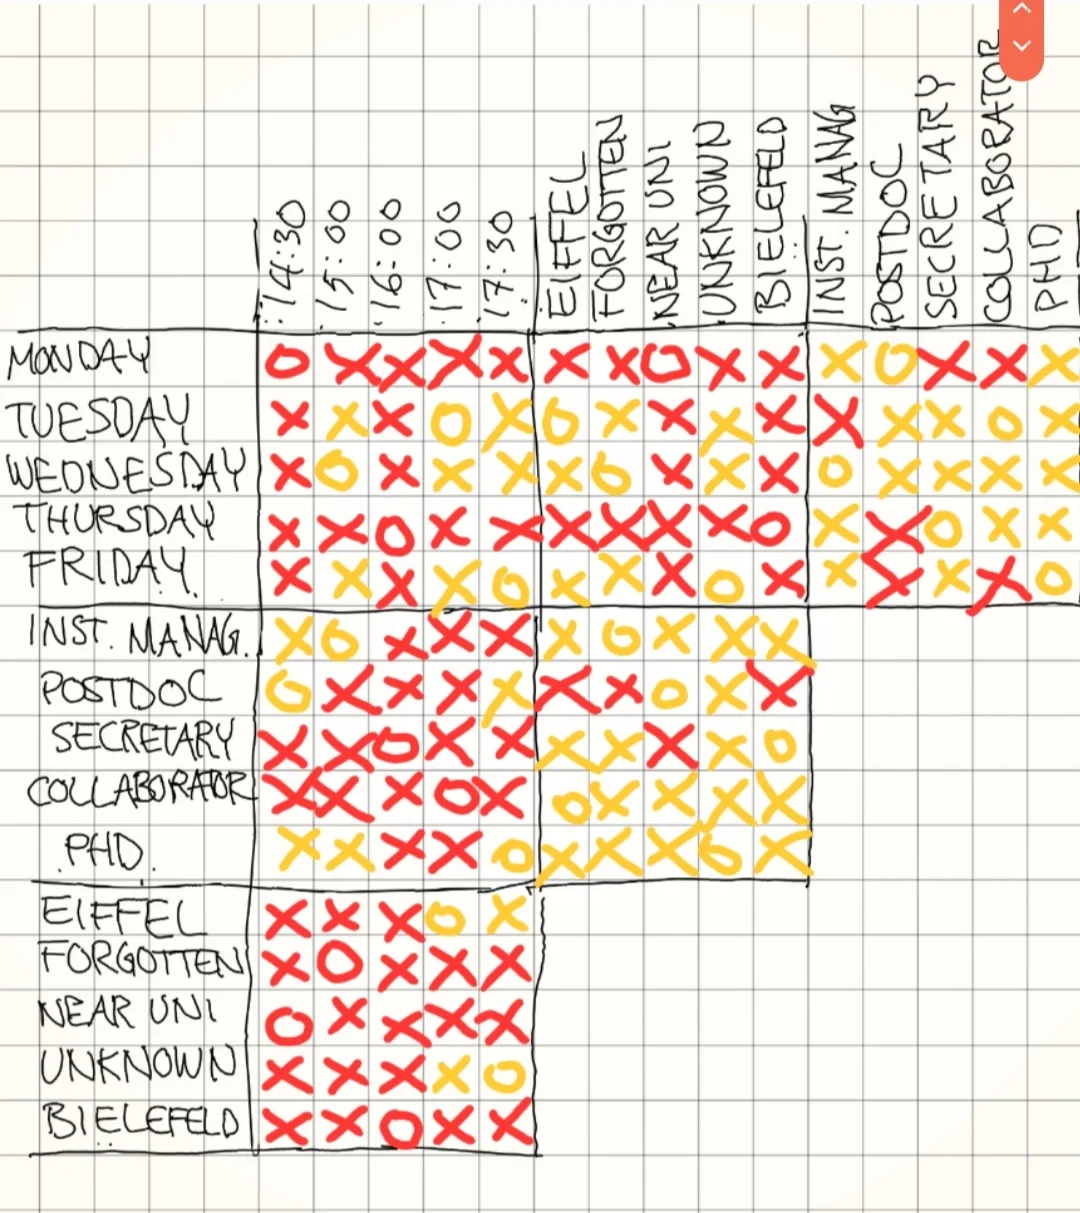 14:30 15:00 16:00 17:00 17:30 EIFFEL FORGOTTEN NEAR UNI UNKNOWN BIELEFELD INST. MANAG POSTDOC SECRETARY COLLABORATOR PHD
MONDAY O X X X X X X O X X X O X X X
TUESDAY X X X O X O X X X X X X X O X
WEDNESDAY X O X X X X O X X X O X X X X
THURSDAY X X O X X X X X X O X X O X X
FRIDAY X X X X O X X X O X X X X X O
INST. MANAG. X O X X X X O X X X
POSTDOC O X X X X X X O X X
SECRETARY X X O X X X X X X O
COLLABORATOR X X X O X O X X X X
PHD. X X X X O X X X O X
EIFFEL X X X O X
FORGOTTEN X O X X X
NEAR UNI O X X X X
UNKNOWN X X X X O
BIELEFELD X X O X X